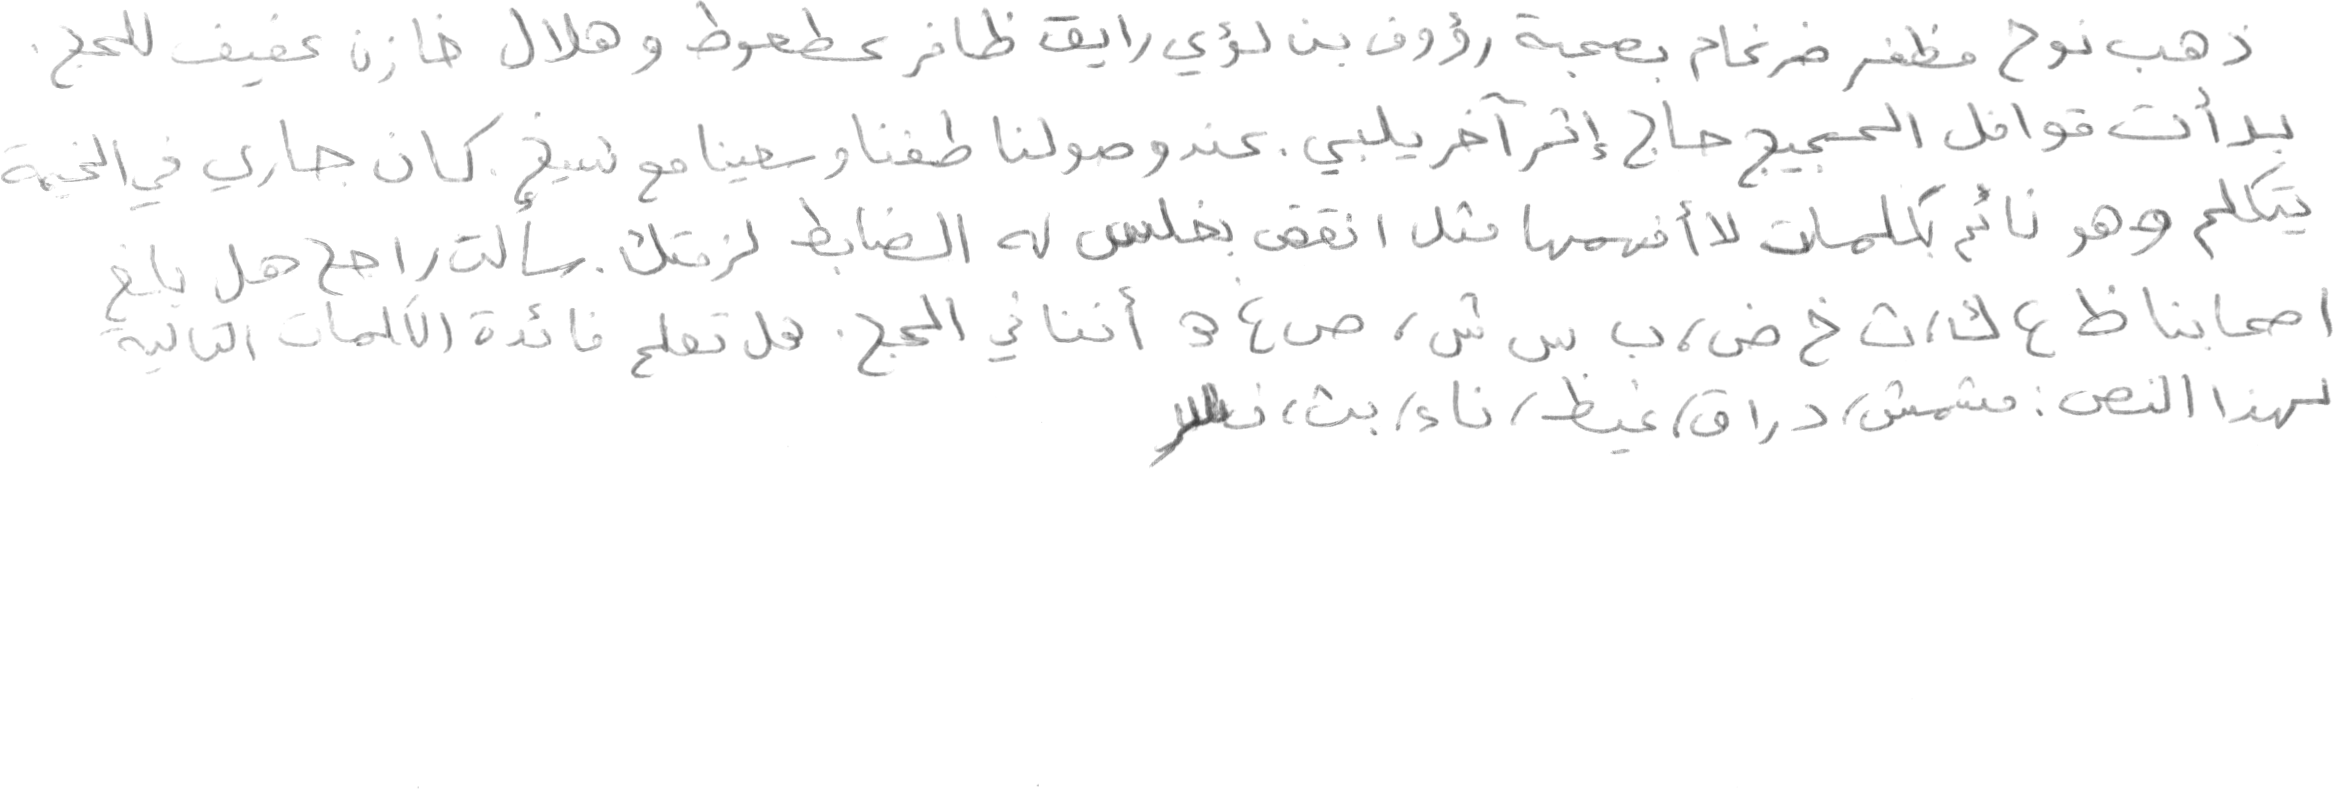 ذهب نوح مظفر ضرغام بصحبة رؤوف بن لؤي رايق ظافر عطعوط و هلال خازن عفيف للحج.
بدأت قوافل الحجيج حاج إثر آخر يلبي. عند وصولنا طفنا وسعينا مع شيخ. كان جاري في الخيمة
يتكلم وهو نائم بكلمات لا أفهمها مثل انقض بخلس له الضابط لزقتك. سألت راجح هل بلغ
اصحابنا ظ ع ك، ث خ ض، ب س ش، ص غ ه أننا في الحج. هل تعلم فائدة الكلمات التالية
لهذا النص: مشمش، دراق، غيظ، ناء، بث،